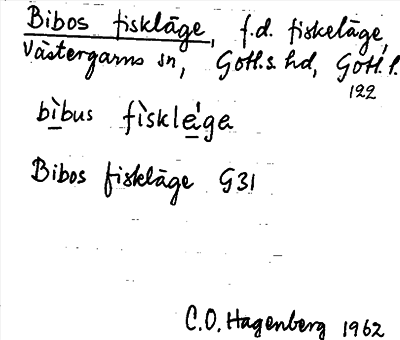 Bibos fiskläge, f.d. fiskeläge,
Västergarns sn, Gotl. s. hd, Gotl. l.
122
bìbus fìsklę́ga
Bibos fiskläge G31
C.O. Hagenberg 1962